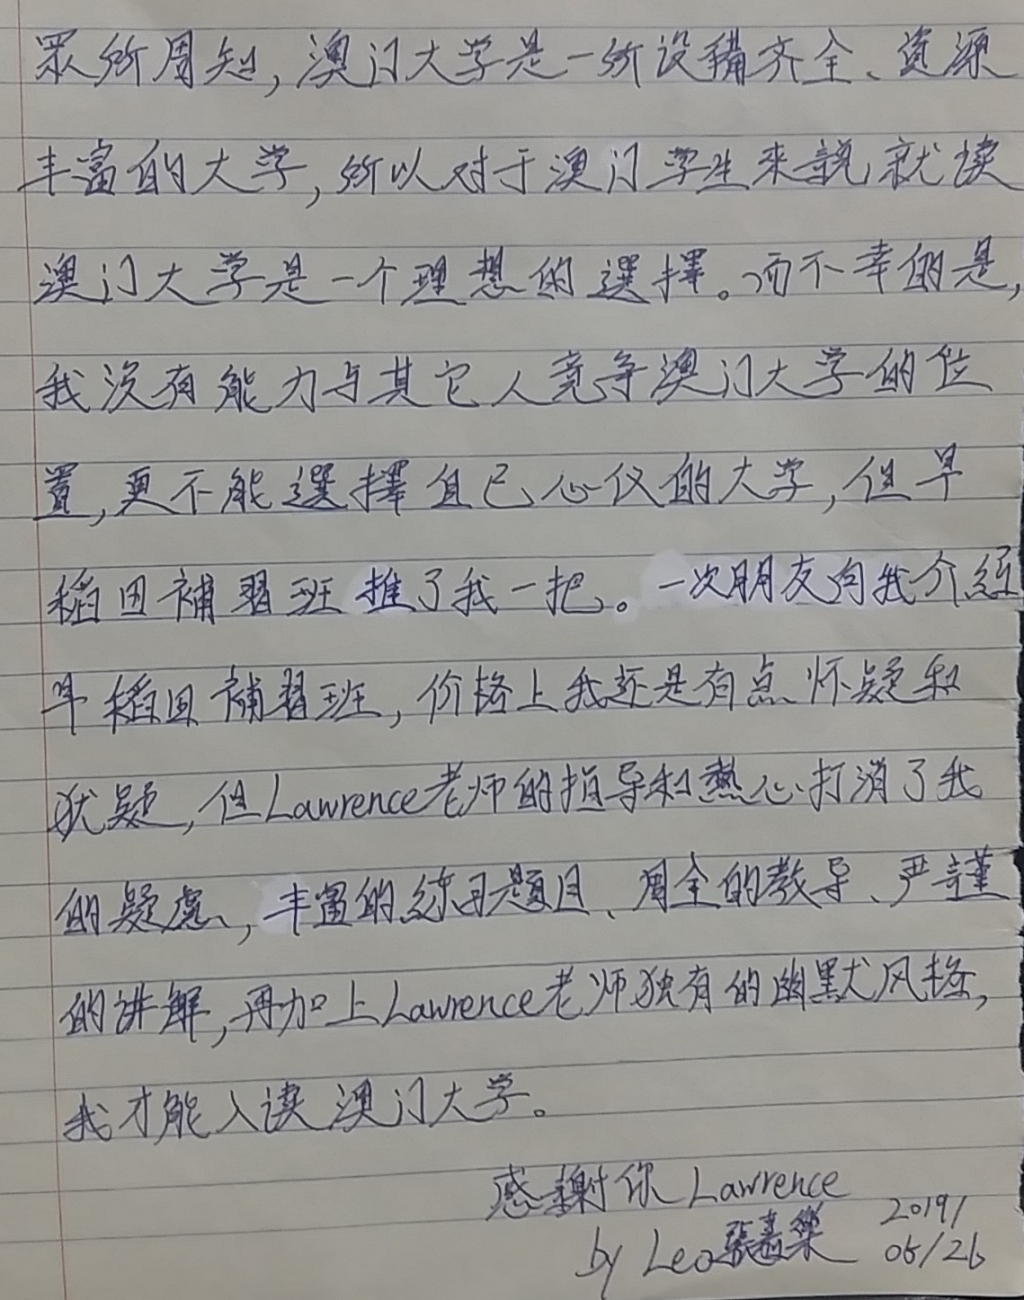 眾所周知,澳门大学是一所设備齐全、资源
丰富的大学,所以对于澳门学生來說就读
澳门大学是一个理想的選擇。而不幸的是,
我没有能力与其它人竞争澳门大学的位
置,更不能選擇自己心仪的大学,但早
稻田補習班推了我一把。一次朋友向我介绍
早稻田補習班,价格上我还是有点怀疑和
犹疑,但Lawrence老师的指导和熱心打消了我
的疑虑,丰富的练习题目、周全的教导、严謹
的讲解,再加上Lawrence老师独有的幽默风格,
我才能入读澳门大学。
感謝你Lawrence
by Leo張嘉樂
2019/
05/26